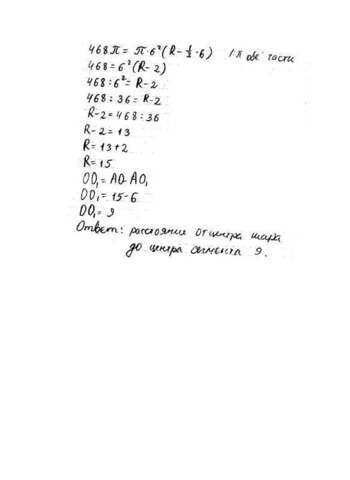 468π = π·6²(R - 1/3·6) /:π обе части
468 = 6²(R - 2)
468 : 6² = R - 2
468 : 36 = R - 2
R - 2 = 468 : 36
R - 2 = 13
R = 13 + 2
R = 15
OO₁ = AO - AO₁
OO₁ = 15 - 6
OO₁ = 9
Ответ: расстояние от центра шара
до центра сегмента 9.